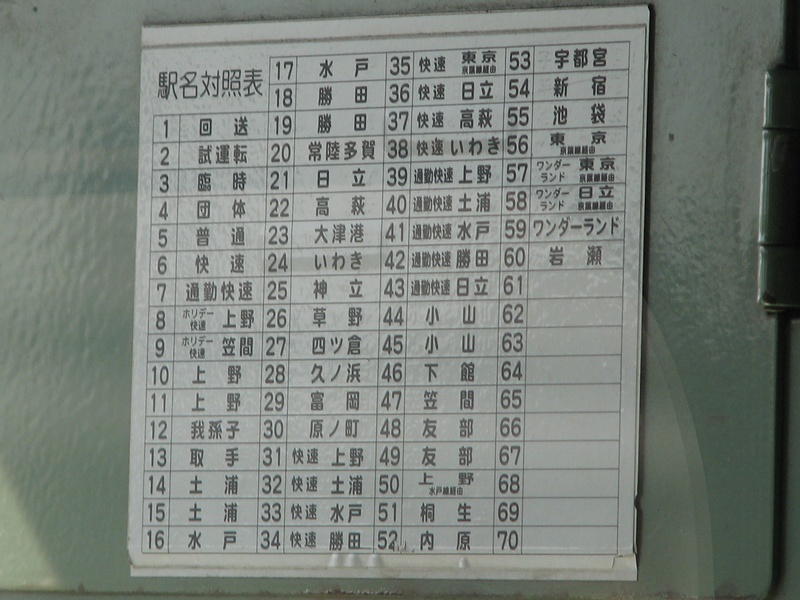 駅名対照表
1 回送
2 試運転
3 臨時
4 団体
5 普通
6 快速
7 通勤快速
8 ホリデー快速 上野
9 ホリデー快速 笠間
10 上野
11 上野
12 我孫子
13 取手
14 土浦
15 土浦
16 水戸
17 水戸
18 勝田
19 勝田
20 常陸多賀
21 日立
22 高萩
23 大津港
24 いわき
25 神立
26 草野
27 四ツ倉
28 久ノ浜
29 富岡
30 原ノ町
31 快速 上野
32 快速 土浦
33 快速 水戸
34 快速 勝田
35 快速 東京 京葉線経由
36 快速 日立
37 快速 高萩
38 快速 いわき
39 通勤快速 上野
40 通勤快速 土浦
41 通勤快速 水戸
42 通勤快速 勝田
43 通勤快速 日立
44 小山
45 小山
46 下館
47 笠間
48 友部
49 友部
50 上野 水戸線経由
51 桐生
52 内原
53 宇都宮
54 新宿
55 池袋
56 東京 京葉線経由
57 ワンダーランド 東京 京葉線経由
58 ワンダーランド 日立 京葉線経由
59 ワンダーランド
60 岩瀬
61
62
63
64
65
66
67
68
69
70